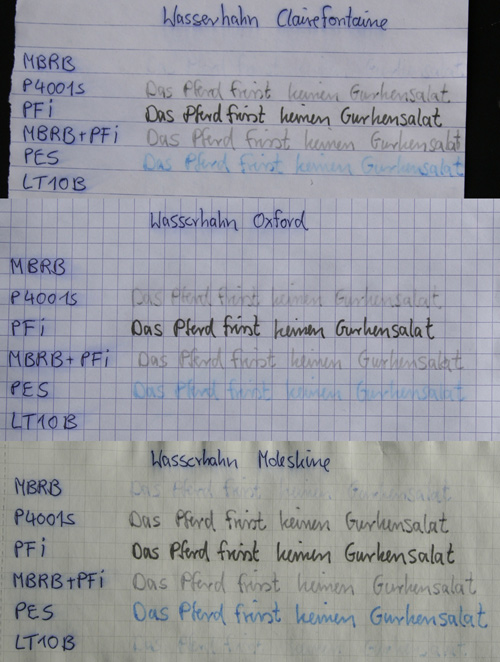 Wasserhahn Clairefontaine
MBRB
P4001s Das Pferd frisst keinen Gurkensalat
PFi Das Pferd frisst keinen Gurkensalat
MBRB+PFi Das Pferd frisst keinen Gurkensalat
PES Das Pferd frisst keinen Gurkensalat
LT10B
Wasserhahn Oxford
MBRB
P4001s Das Pferd frisst keinen Gurkensalat
PFi Das Pferd frisst keinen Gurkensalat
MBRB+PFi Das Pferd frisst keinen Gurkensalat
PES Das Pferd frisst keinen Gurkensalat
LT10B
Wasserhahn Moleskine
MBRB Das Pferd frisst keinen Gurkensalat
P4001s Das Pferd frisst keinen Gurkensalat
PFi Das Pferd frisst keinen Gurkensalat
MBRB+PFi Das Pferd frisst keinen Gurkensalat
PES Das Pferd frisst keinen Gurkensalat
LT10B